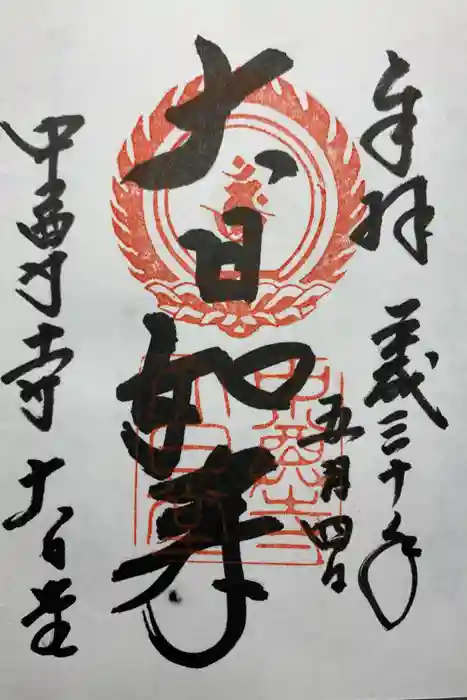 奉拝
平成三十年
五月四日
大日如来
中尊寺 大日堂